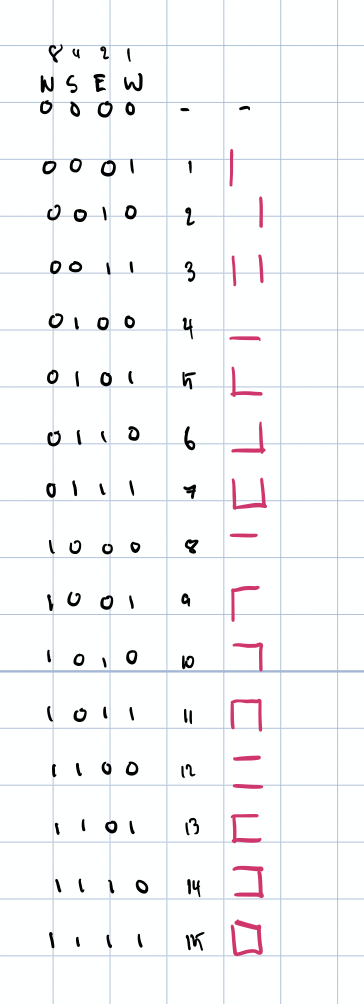 8 4 2 1
N S E W
0 0 0 0 - -
0 0 0 1 1
0 0 1 0 2
0 0 1 1 3
0 1 0 0 4
0 1 0 1 5
0 1 1 0 6
0 1 1 1 7
1 0 0 0 8
1 0 0 1 9
1 0 1 0 10
1 0 1 1 11
1 1 0 0 12
1 1 0 1 13
1 1 1 0 14
1 1 1 1 15